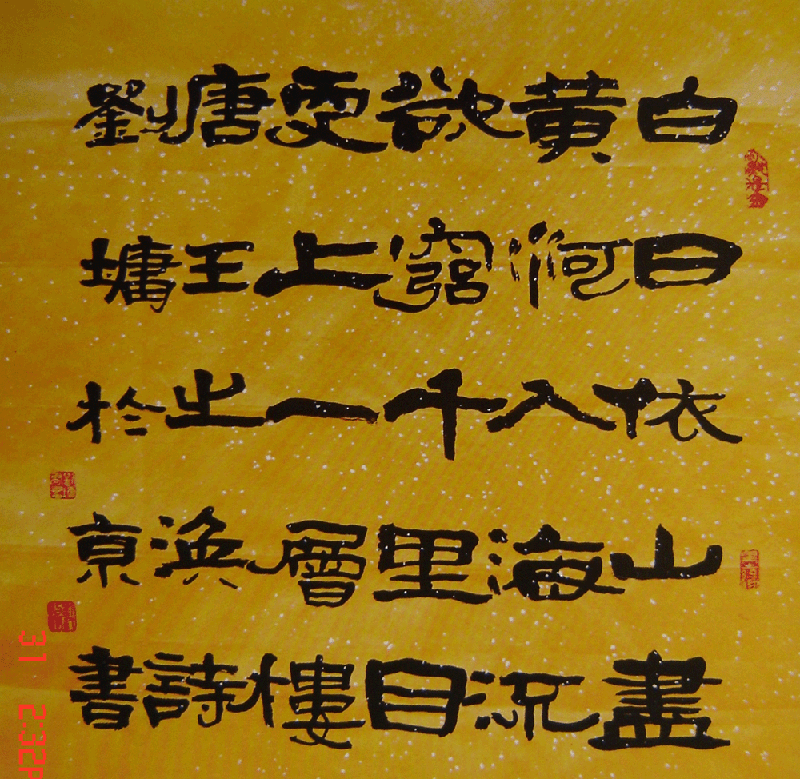 白日依山盡
黃河入海流
欲窮千里目
更上一層樓
唐王之渙詩
劉墉於京書
31 2:32P